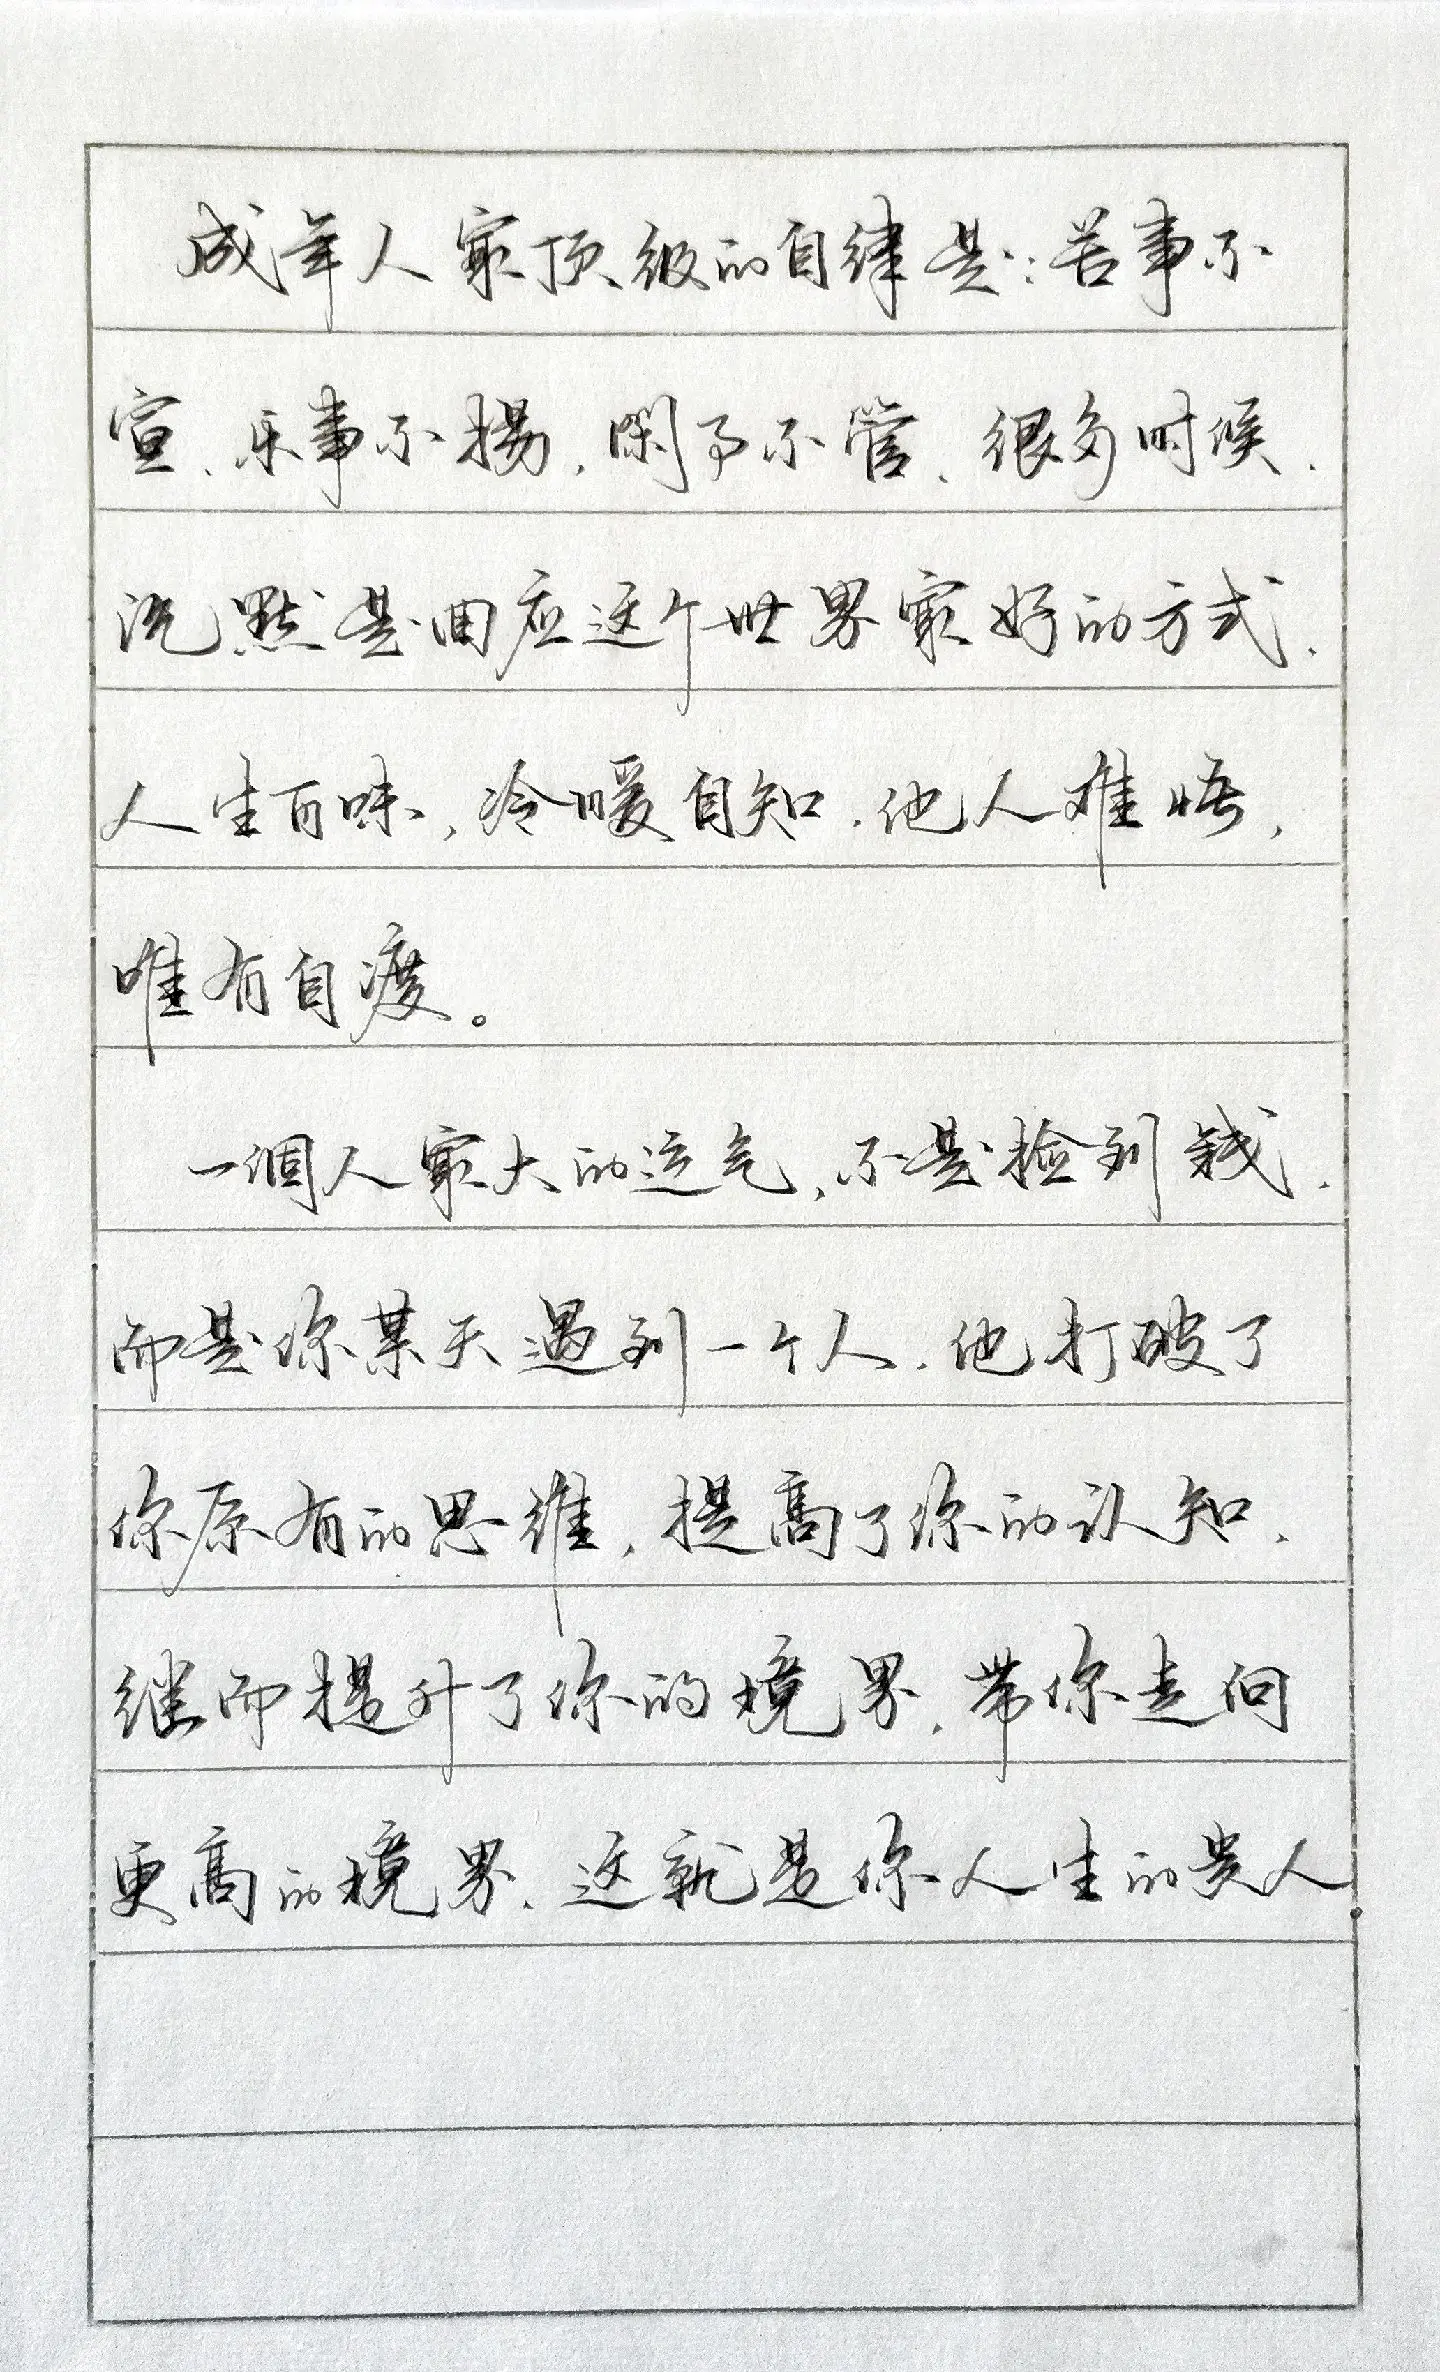 成年人最顶级的自律是：苦事不
宣、乐事不揚，闲事不管、很多时候，
沉默是回应这个世界最好的方式，
人生百味，冷暖自知，他人难悟，
唯有自渡。
一個人最大的运气，不是捡到钱，
而是你某天遇到一个人，他打破了
你原有的思维，提高了你的认知，
继而提升了你的境界，带你走向
更高的境界，这就是你人生的贵人。